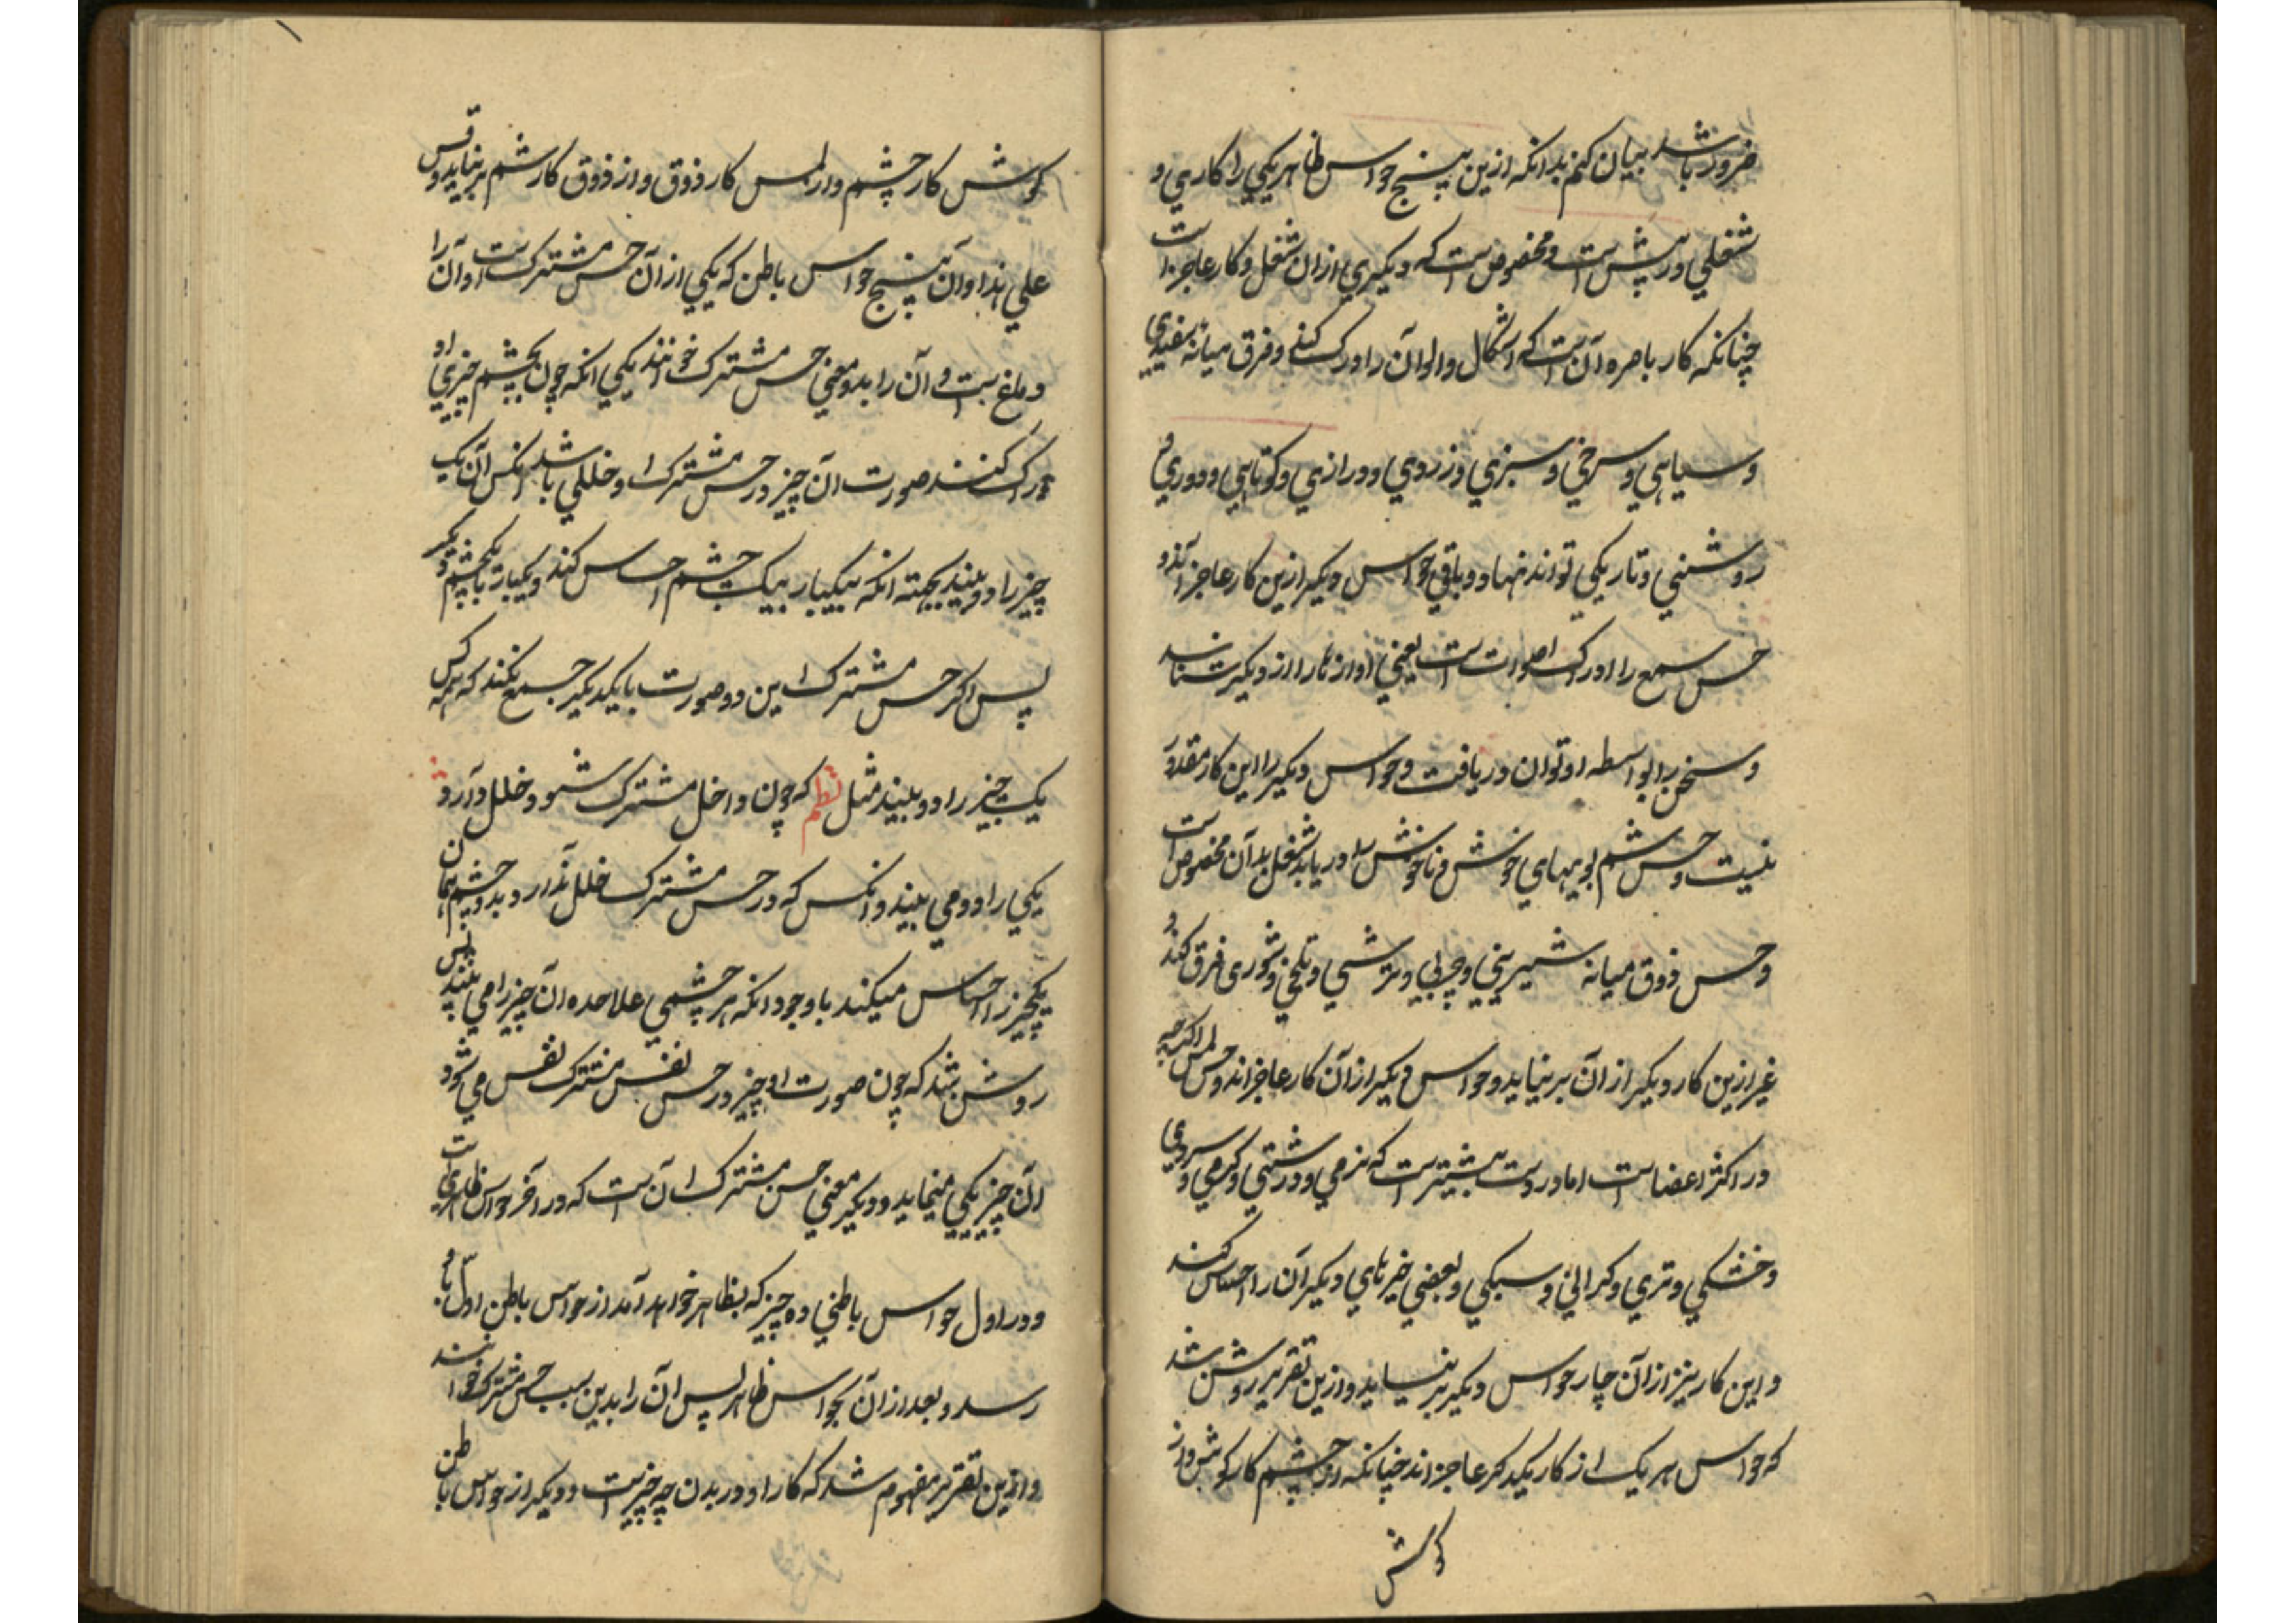 ضرور باشد بیان کنم بدانکه ازین پنج حواس ظاهر یکی را کاری و
شغلی در پیش است و مخصوص است که دیگری ازان شغل و کار عاجز است
چنانکه کار باصره آن است که اشکال و الوان را درک کند و فرق میانه سفیدی
و سیاهی و سرخی و سبزی و زردی و درازی و کوتاهی و دوری و
روشنی و تاریکی تواند نهاد و باقی حواس دیگر ازین کار عاجز اند و
حس سمع را ادراک اصوات است یعنی اوازها را از دیگر شناسد
و سخن را بواسطه او توان دریافت و حواس دیگر را این کار مقدور
نیست و حس شم بویهای خوش و ناخوش را دریابد شغل بدان مخصوص است
و حس ذوق میانه شیرینی و چربی و ترشی و تلخی و شوری فرق کند و
غیر ازین کار دیگر از آن بر نیاید و حواس دیگر از آن کار عاجز اند و حس لمس اگرچه
در اکثر اعضاست اما در دست بیشتر است که نرمی و درشتی و گرمی و سردی
و خشکی و تری و گرانی و سبکی و بعضی خبرهای دیگر آن را احساس کند
و این کار نیز از آن چار حواس دیگر بر نیاید و ازین تقریر روشن شد
که حواس هر یک از کار یکدیگر عاجز اند چنانکه از چشم کار گوش و از
گوش
گوش کار چشم و از لمس کار ذوق و از ذوق کار شم بر نیاید و قس
علی هذا و آن پنج حواس باطن که یکی از آن حس مشترک است او آن را
دماغ است و آن را بدو معنی حس مشترک خوانند یکی انکه چون بچشم چیزی را
درک کنند صورت ان چیز در حس مشترک و خللی باشد انکس آن یک
چیز را دو بیند بجهته انکه یکبار بیک چشم احساس کند و یکبار با چشم دیگر
پس اگر حس مشترک این دو صورت با یکدیگر جمع نکند که همه کس
یک چیز را دو بیند مثل نظم که چون داخل مشترک شود خلل در آرد
یکی را دو می بیند و انکس که در حس مشترک خلل ندارد بدو چشم همان
یکچیز را احساس میکند با وجود انکه هر چشمی علاحده ان چیز را می بیند پس
روشن شد که چون صورت چیز در حس مشترک نقش می شود
ان چیز یکی مینماید و دیگر معنی حس مشترک آن است که در آخر حواس ظاهری است
و در اول حواس باطنی و چیز که بظاهر خواهد آمد از حواس باطن اول باو
رسد و بعد از آن بحواس ظاهر پس ان را بدین سبب حس مشترک خوانند
و ازین تقریر مفهوم شد که کار او در بدن چه چیز است و دیگر از حواس باطن